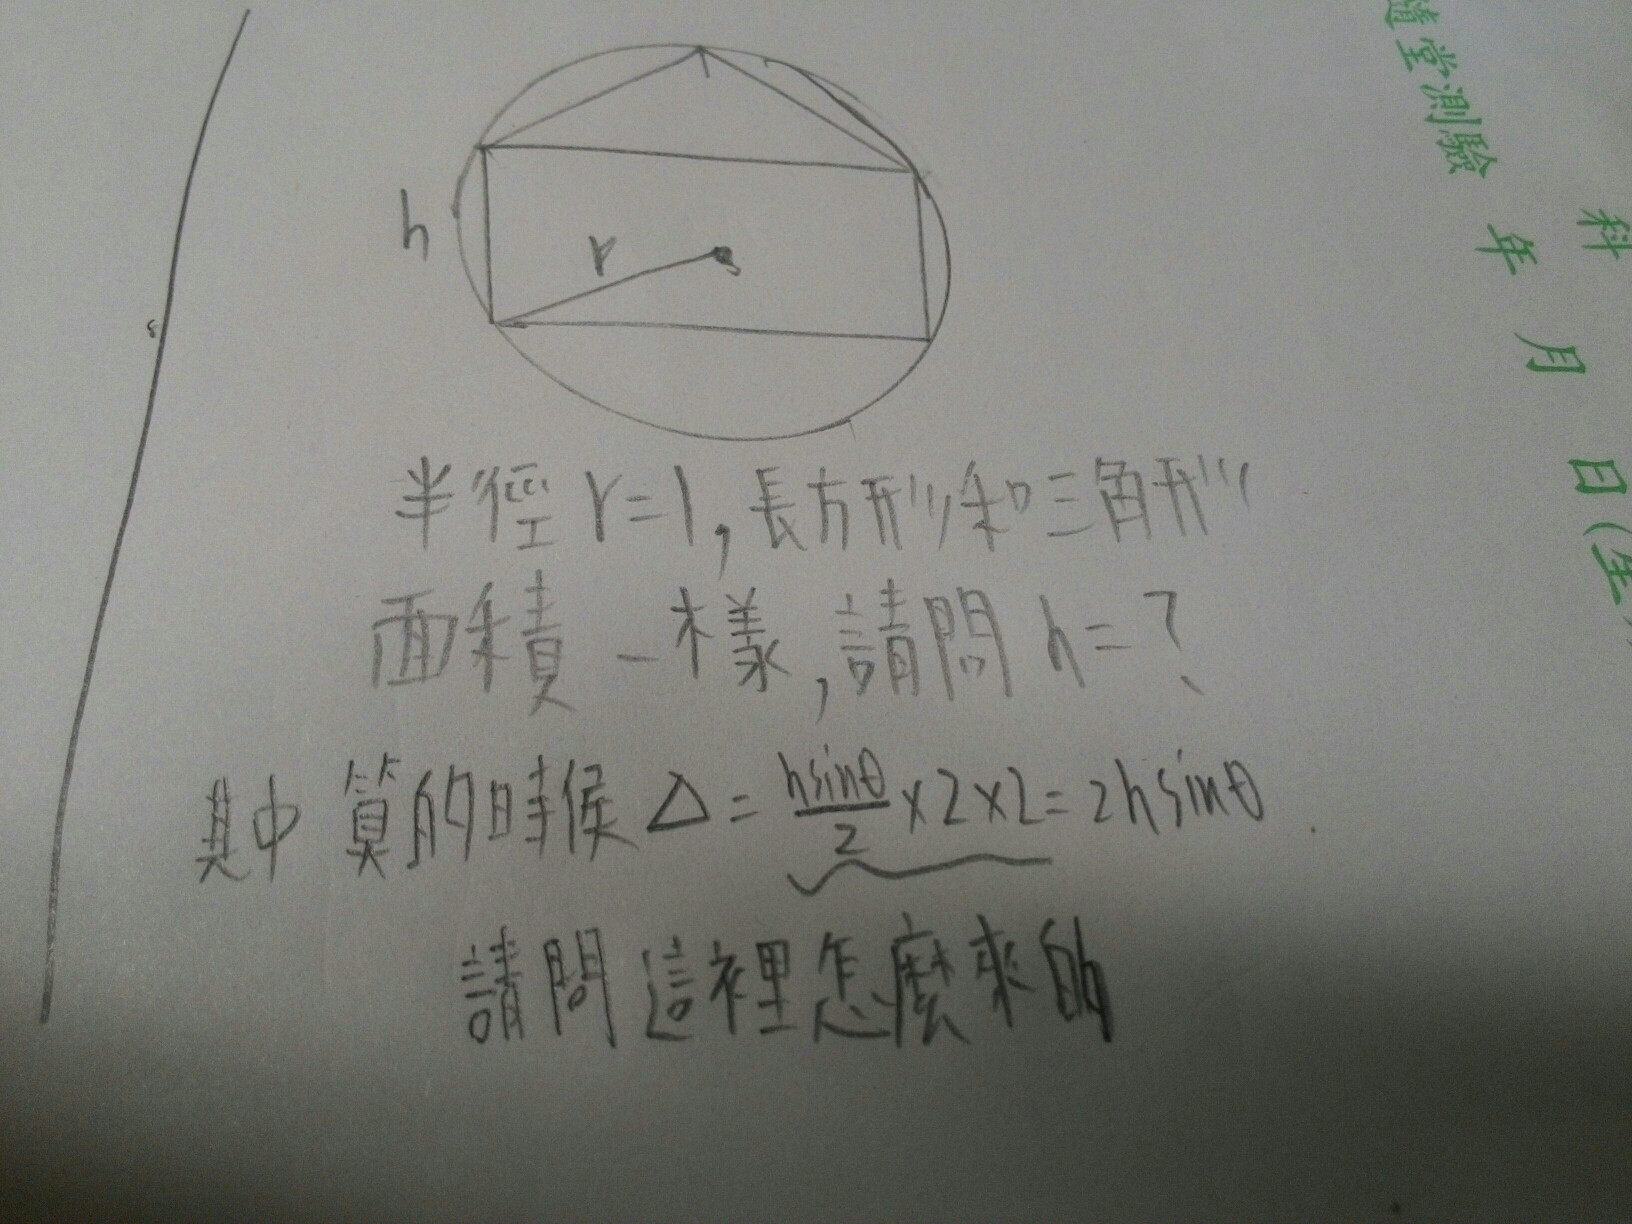 h
r
半徑 r=1,長方形和三角形
面積一樣,請問 h=?
其中算的時候 △ = hsinθ/2 ×2×2=2hsinθ
請問這裡怎麼來的
隨堂測驗
科
年 月 日(